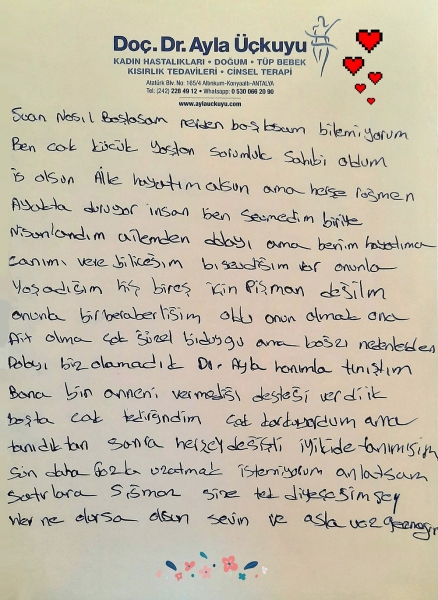 Doç. Dr. Ayla Üçkuyu
KADIN HASTALIKLARI • DOĞUM • TÜP BEBEK
KISIRLIK TEDAVİLERİ • CİNSEL TERAPİ
Atatürk Blv. No: 165/4 Altınkum-Konyaaltı-ANTALYA
Tel: (242) 228 49 12 • Whatsapp: 0 530 066 20 90
www.aylauckuyu.com
Suan Nasıl Başlasam nerden başlasam bilemiyorum
Ben cok küçük yaştan sorumluk sahibi oldum
iş olsun Aile hayatım olsun ama herşe rağmen
Ayakta duruyor insan ben sevmedim birile
Nişanlandım ailemden dolayı ama benim hayatıma
canımı vere biliceğim bi sevdiğim var onunla
Yaşadığım hiç bireş için Pişman değilm
onunla bir beraberliğim oldu onun olmak ona
Ait olma çok güzel biduygu ama bağzı nedenlerden
Dolayı biz olamadık Dr. Ayla hanımla tınıştım
Bana bin anneni vermediği desteği verdiik
başta cok tedirgndim çok korkuyordum ama
tanıdıktan sonra herşey değişti iyikide tanımışım
şün daha fozla uzatmak istemiyorum anlatsam
satırlara Sığmaz gine tek diyeceğim şey
Her ne olursa olsun sevin ve asla vaz geçmeğin